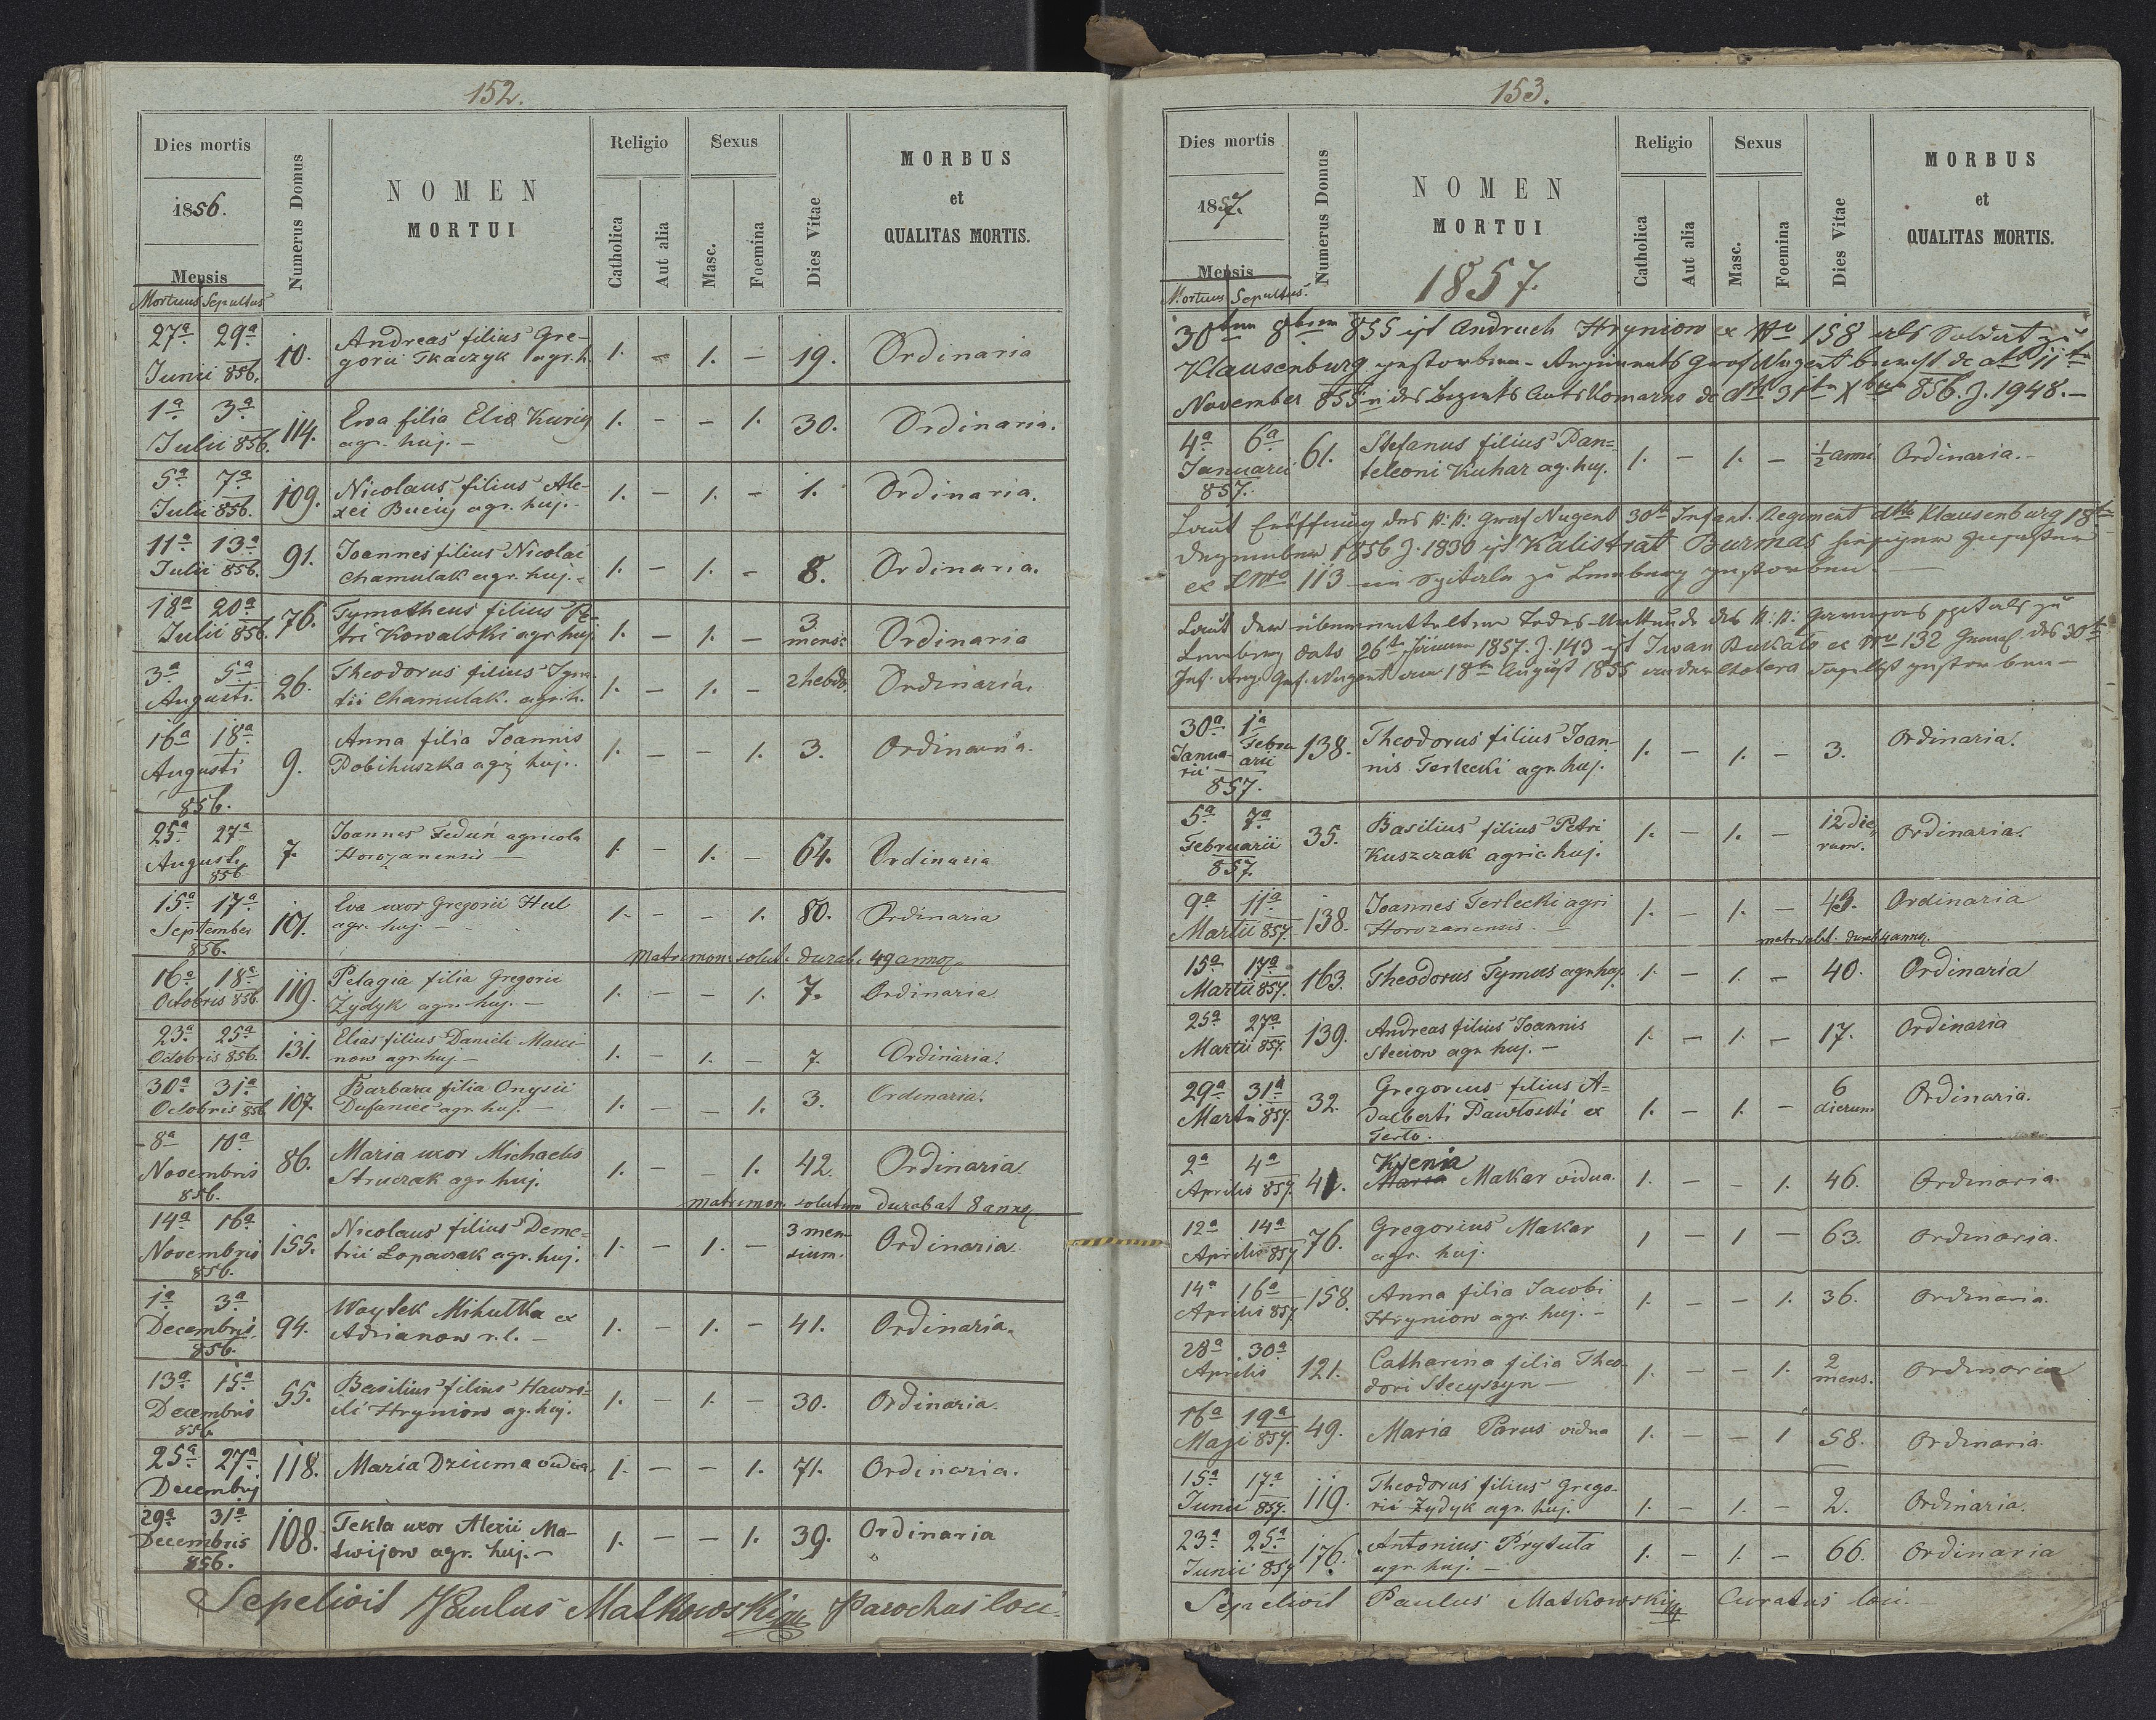 152.
Dies mortis
1856.
Mensis
Mortuus Sepultus
Numerus Domus
NOMEN
MORTUI
Religio
Catholica
Aut alia
Sexus
Masc.
Foemina
Dies Vitae
MORBUS
et
QUALITAS MORTIS.
27ª 29ª Andreas filius Gre-
Junii 856. 10. gorii Tkaczyk agr. h. 1. - 1. - 19. Ordinaria
1ª 3ª Eva filia Eliæ Kurig 1. - - 1. 30. Ordinaria.
Julii 856. 114. agr. huj. -
5ª 7ª Nicolaus filius Ale-
Julii 856. 109. xei Buciy agr. huj. - 1. - 1. - 1. Ordinaria.
11ª 13ª Joannes filius Nicolai
Julii 856. 91. Chamulak agr. huj. - 1. - 1. - 8. Ordinaria.
18ª 20ª Tymotheus filius Pe- 3
Julii 856. 76. tri Kowalski agr huj. 1. - 1. - mens: Ordinaria
3ª 5ª Theodorus filius Igna-
Augusti 26. tii Chamulak. agr. h. 1. - 1. - 2 hebdo. Ordinaria.
16ª 18ª Anna filia Joannis
Augusti 9. Pobihuszka agr huj. 1. - - 1. 3. Ordinaria.
856.
25ª 27ª Joannes Feduń agricola
Augusti 7. Horozanensis - 1. - 1. - 64. Ordinaria
856
15ª 17ª Eva uxor Gregorii Hul
September 101. agr. huj. - 1. - - 1. 80. Ordinaria
856. matrimon: solut: durab: 49 annos
16ª 18ª Pelagia filia Gregorii
Octobris 856. 119. Żydyk agr. huj. - 1. - - 1. 7. Ordinaria
23ª 25ª Elias filius Danieli Marci-
Octobris 856. 131. now agr huj - 1. - 1. - 7. Ordinaria.
30ª 31ª Barbara filia Onysii
Octobris 856 107. Dufaniec agr huj. - 1. - - 1. 3. Ordinaria.
8ª 10ª Maria uxor Michaelis
Novembris 86. Struczak agr huj. 1. - - 1. 42. Ordinaria
856. matrimon. solutum durabat 8 annos
14ª 16ª Nicolaus filius Deme- 3 men-
Novembris 155. trii Lopaczak agr. huj. 1. - 1. - sium. Ordinaria
856.
1ª 3ª Woytek Mihutka ex
Decembris 94. Adrianow r. l. - 1. - 1. - 41. Ordinaria.
856.
13ª 15ª Basilius filius Hawri-
Decembris 55. ili Hryniow ag. huj. 1. - 1. - 30. Ordinaria.
856
25ª 27ª 118. Maria Dziuma vidua. 1. - - 1. 71. Ordinaria.
Decembris
29ª 31ª Tekla uxor Alexii Ma- Ordinaria
Decembris 108. twijow agr. huj. - 1. - - 1. 39.
856.
Sepelivit Paulus Matkowski Parochus loci.
153.
Dies mortis
1857.
Mensis
Mortuus Sepultus.
Numerus Domus
NOMEN
MORTUI
1857.
Religio
Catholica
Aut alia
Sexus
Masc.
Foemina
Dies Vitae
MORBUS
et
QUALITAS MORTIS.
30ten 8bem 855 ist Andruch Hryniow ex Nro 158 als Soldat zu
Klausenburg gestorben - Regiments Graf Nugent de dtto 11ten
November 855 des Bezirks Amts Komarno de dtto 31ten Xber 856. Z. 1948. -
4ª 6ª Stefanus filius Pan=
Januarii 61. teleoni Kuhar ag. huj. 1. - 1. - ½ anni Ordinaria. -
857.
Laut Eröffnung des k: k: Graf Nugent 30ten Infant. Regiment dtto Klausenburg 18ten
Dezember 1856 Z. 1830 ist Kalistrat Burmas
ex CNro 113 im Spitale zu Lemberg gestorben
Laut der übermittelten Todes-Urkunde des k: k: Garnisons spitals zu
Lemberg dato 26ten Jänner 1857. Z. 143 ist Iwan Dukato ex Nro 132 des 30ten
Inf. Reg. Graf. Nugent am 18ten August 1855 an der Cholera daselbst gestorben -
30ª 1ª
Janua- Febru- 138. Theodorus filius Joan- Ordinaria.
rii arii nis Terlecki agr. huj. 1. - 1. - 3.
857.
5ª 7ª Basilius filius Petri 12 die-
Februarii 35. Kuszczak agric huj. 1. - 1. - rum. Ordinaria.
857.
9ª 11ª Joannes Terlecki agri
Martii 857. 138. Horozanensis. - 1. - 1. - 43. Ordinaria
matr. solut. durab 4 annos.
15ª 17ª
Martii 857. 163. Theodorus Tymus agr huj. 1. - 1. - 40. Ordinaria
25ª 27ª Andreas filius Joannis
Martii 857. 139. Steciow agr huj. - 1. - 1. - 17. Ordinaria
29ª 31ª Gregorius filius A= 6
Martii 857. 32. dalberti Pawłoski ex 1. - 1. - dierum Ordinaria.
Terło.
2ª 4ª Xsenia
Aprilis 857. 41. Maria Makar vidua. 1. - - 1. 46. Ordinaria.
12ª 14ª Gregorius Makar
Aprilis 857 76. agr. huj. 1 - 1 - 63. Ordinaria.
14ª 16ª Anna filia Jacobi
Aprilis 857 158. Hryniow agr. huj. - 1. - - 1. 36. Ordinaria.
28ª 30ª Catharina filia Theo- 2
Aprilis 121. dori Stecyszyn - 1. - - 1. mens. Ordinaria
16ª 19ª
Maji 857. 49. Maria Parus vidua 1. - - 1 58. Ordinaria.
15ª 17ª Theodorus filius Grego-
Junii 857. 119. rii Żydyk agr. huj. 1. - 1. - 2. Ordinaria.
23ª 25ª Antonius Prytuła
Junii 857 176. agr huj. - 1. - 1. - 66. Ordinaria
Sepelivit Paulus Matkowski Curatus loci.